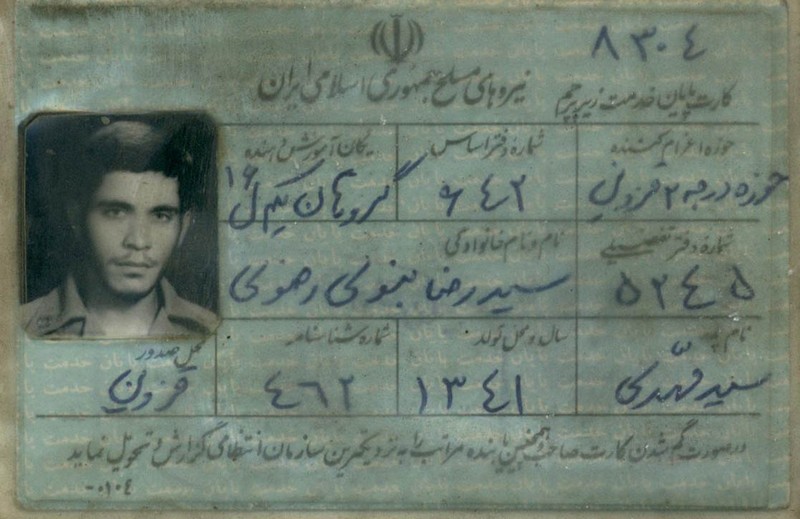 ۸۳۰۴
نیروهای مسلح جمهوری اسلامی ایران
کارت پایان خدمت زیر پرچم
حوزه اعزام کننده
حوزه درجه ۲ قزوین
شماره دفتر اساس
۶۴۲
یگان آموزش دهنده
گروهان یکم ل ۱۶
شماره دفتر تفصیلی
۵۲۴۵
نام و نام خانوادگی
سید رضا رضوی
نام پدر
سید مهدی
سال و محل تولد
۱۳۴۱
شماره شناسنامه
۴۶۲
محل صدور
قزوین
در صورت گم شدن کارت صاحب و همچنین یابنده مراتب را به نزدیکترین سازمان انتظامی گزارش و تحویل نماید